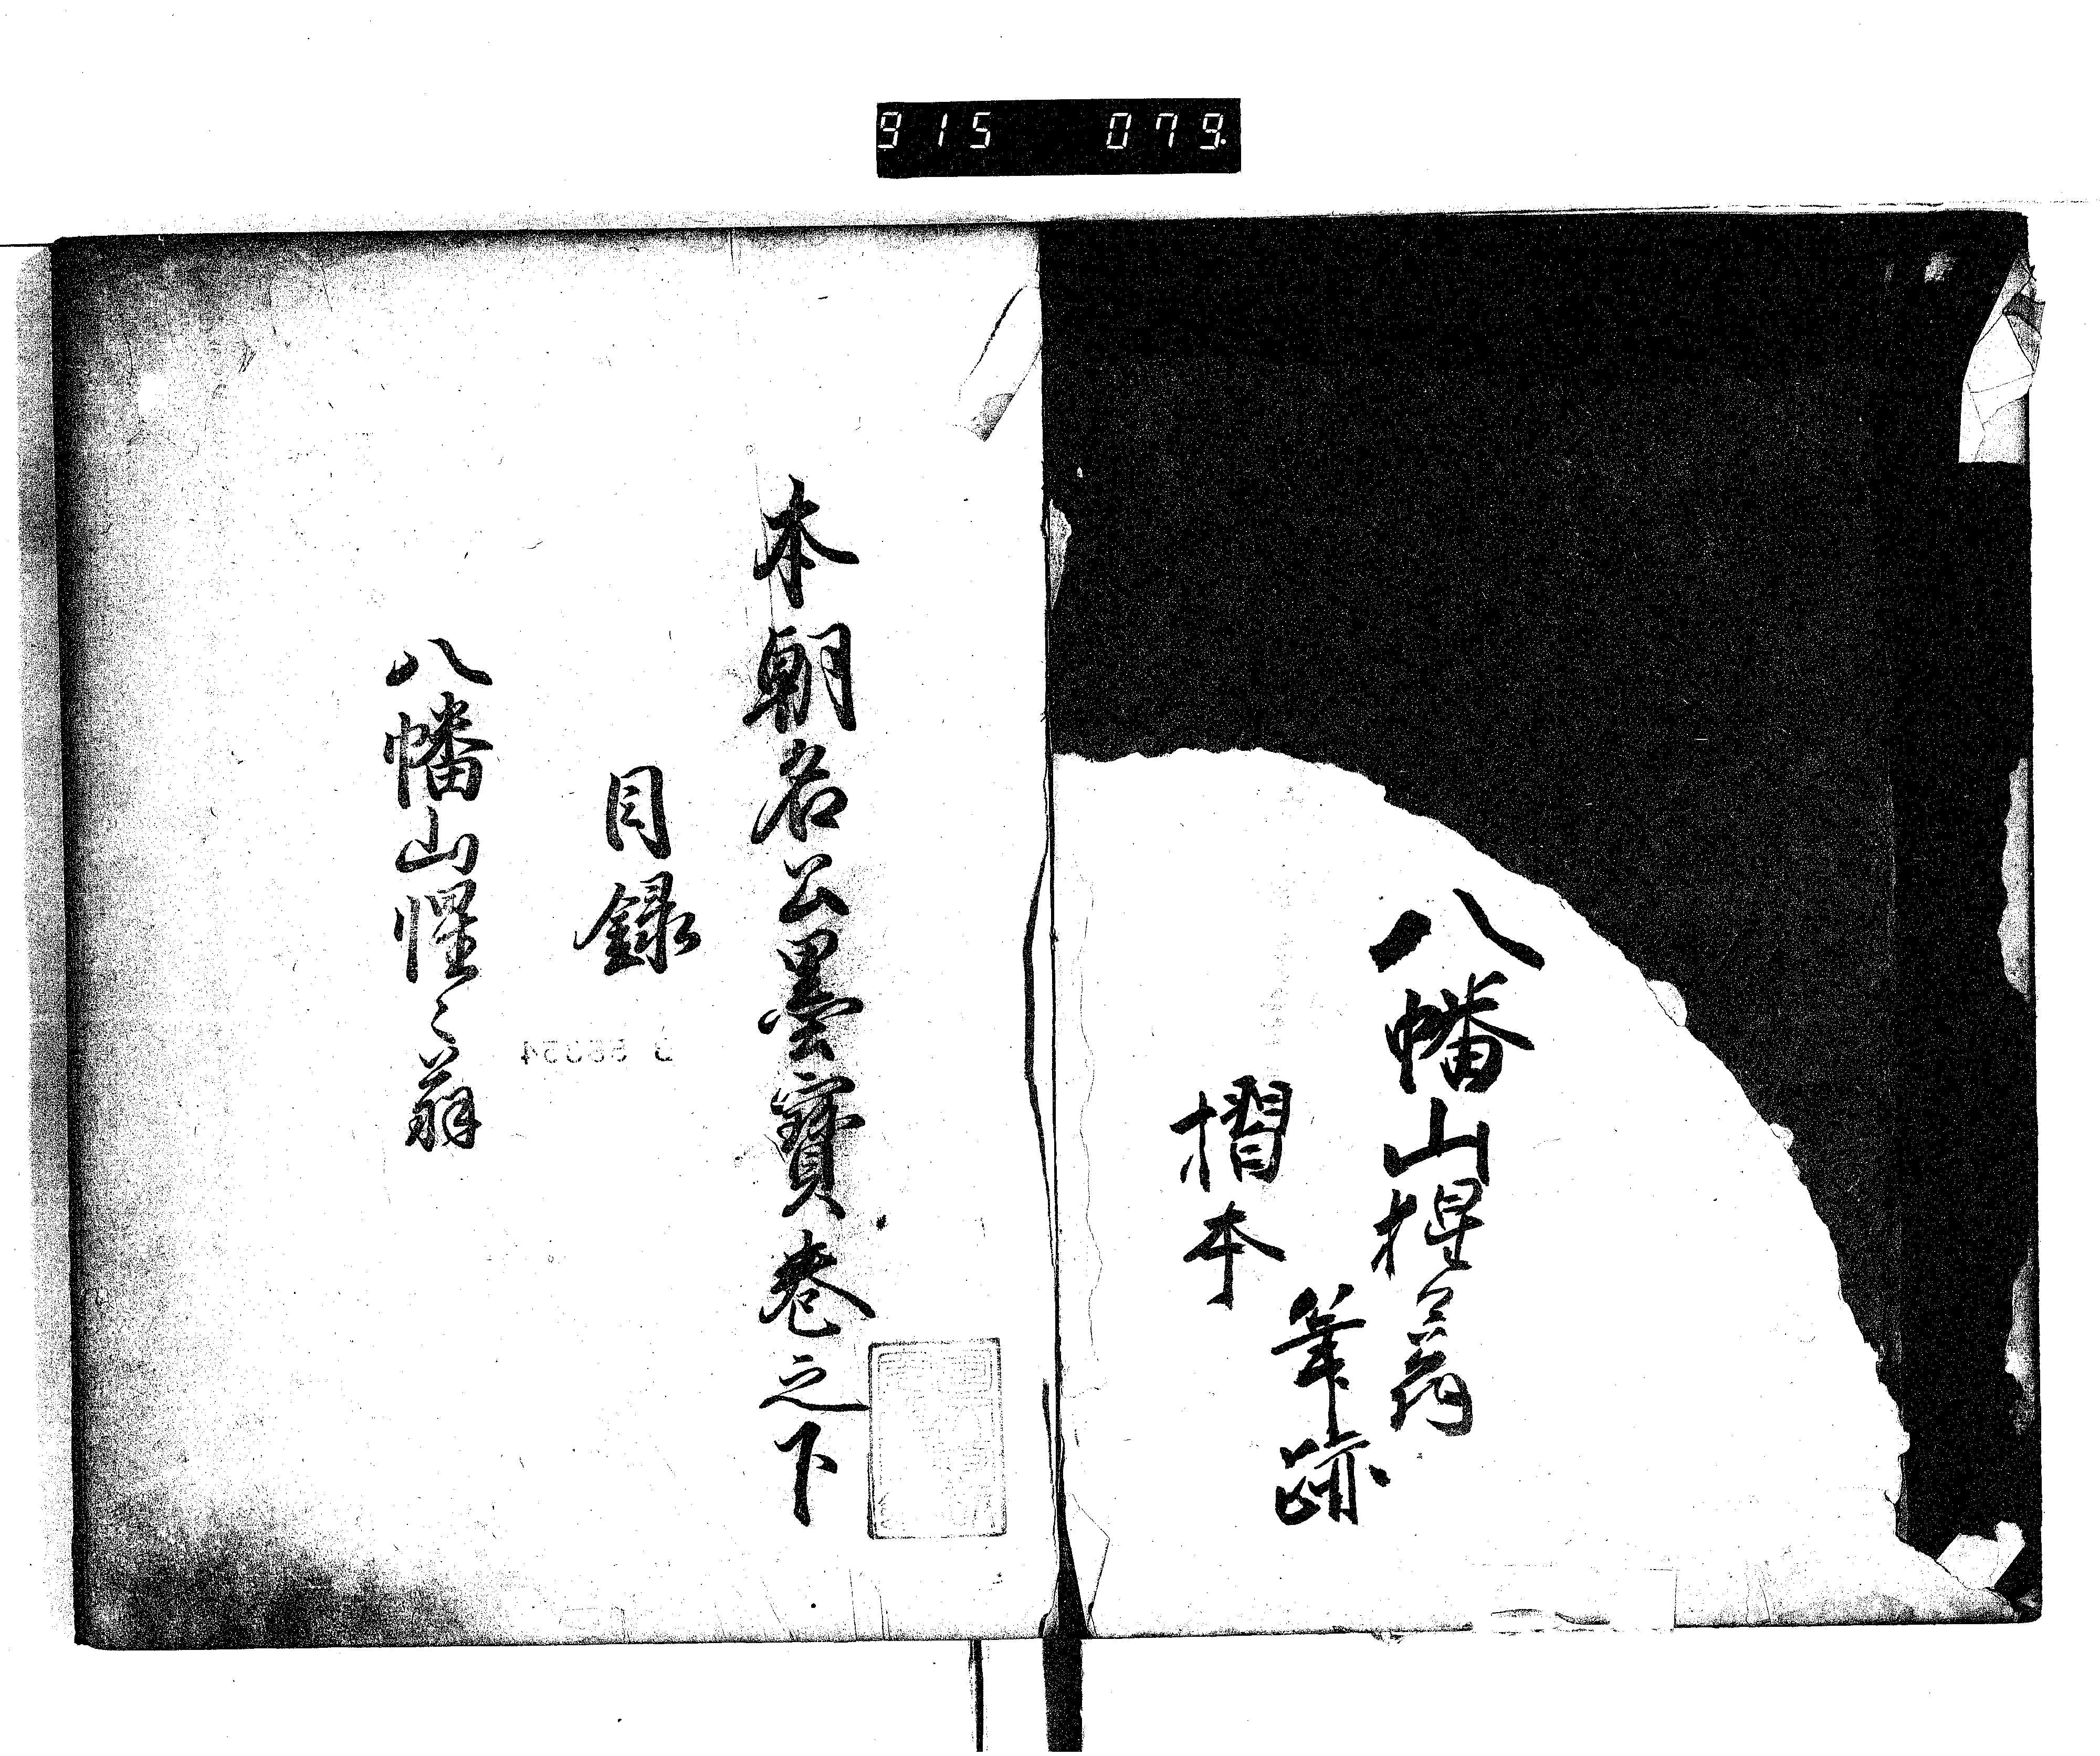 915 079
八幡山惺〻翁
筆跡
摺本
本朝名公墨寶卷之下
目録
八幡山惺〻翁